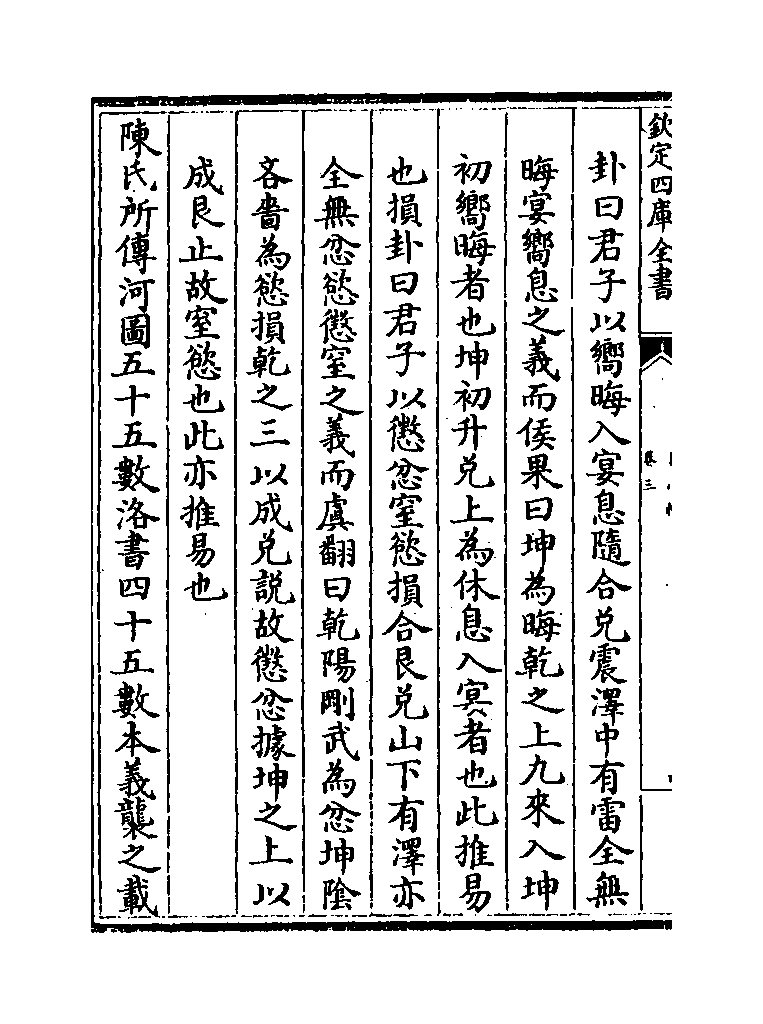 欽定四庫全書
卷三
卦曰君子以嚮晦入宴息隨合兑震澤中有雷全無
晦宴嚮息之義而侯果曰坤為晦乾之上九來入坤
初嚮晦者也坤初升兑上為休息入㝠者也此推易
也損卦曰君子以懲忿窒慾損合艮兑山下有澤亦
全無忿慾懲窒之義而虞翻曰乾陽剛武為忿坤陰
吝嗇為慾損乾之三以成兑説故懲忿據坤之上以
成艮止故窒慾也此亦推易也
陳氏所傳河圖五十五數洛書四十五數本義襲之載